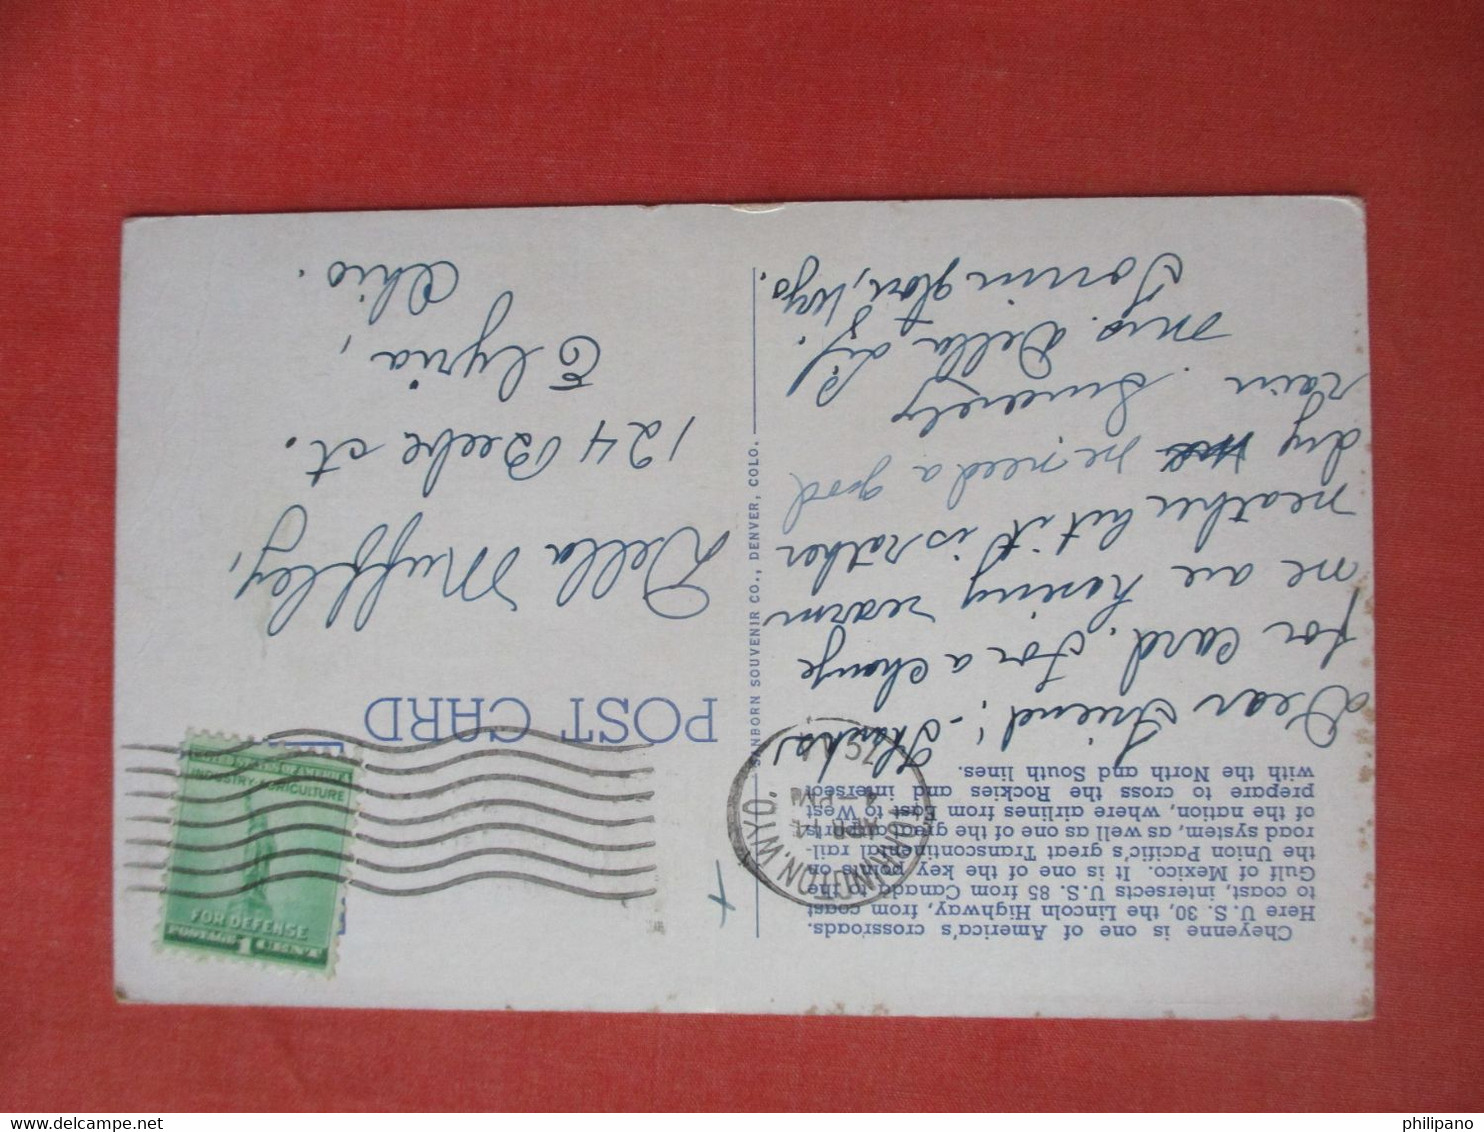 Cheyenne is one of America's crossroads.
Here U. S. 30, the Lincoln Highway, from coast
to coast, intersects U. S. 85 from Canada to the
Gulf of Mexico. It is one of the key points on
the Union Pacific's great Transcontinental rail-
road system, as well as one of the great airports
of the nation, where airlines from East to West
prepare to cross the Rockies and intersect
with the North and South lines.
Dear Friend; - Thanks
for card. For a change
we are having warm
weather but it is rather
dry we need a good
rain. Sincerely
Mrs. Della
Torrington, Wyo.
SANBORN SOUVENIR CO., DENVER, COLO.
TORRINGTON, WYO.
APR 14
PM
POST CARD
FOR DEFENSE
POSTAGE 1 CENT
UNITED STATES OF AMERICA
INDUSTRY AGRICULTURE
Della Muffley,
124 Beebe ct.
Elyria,
Ohio.
philipano